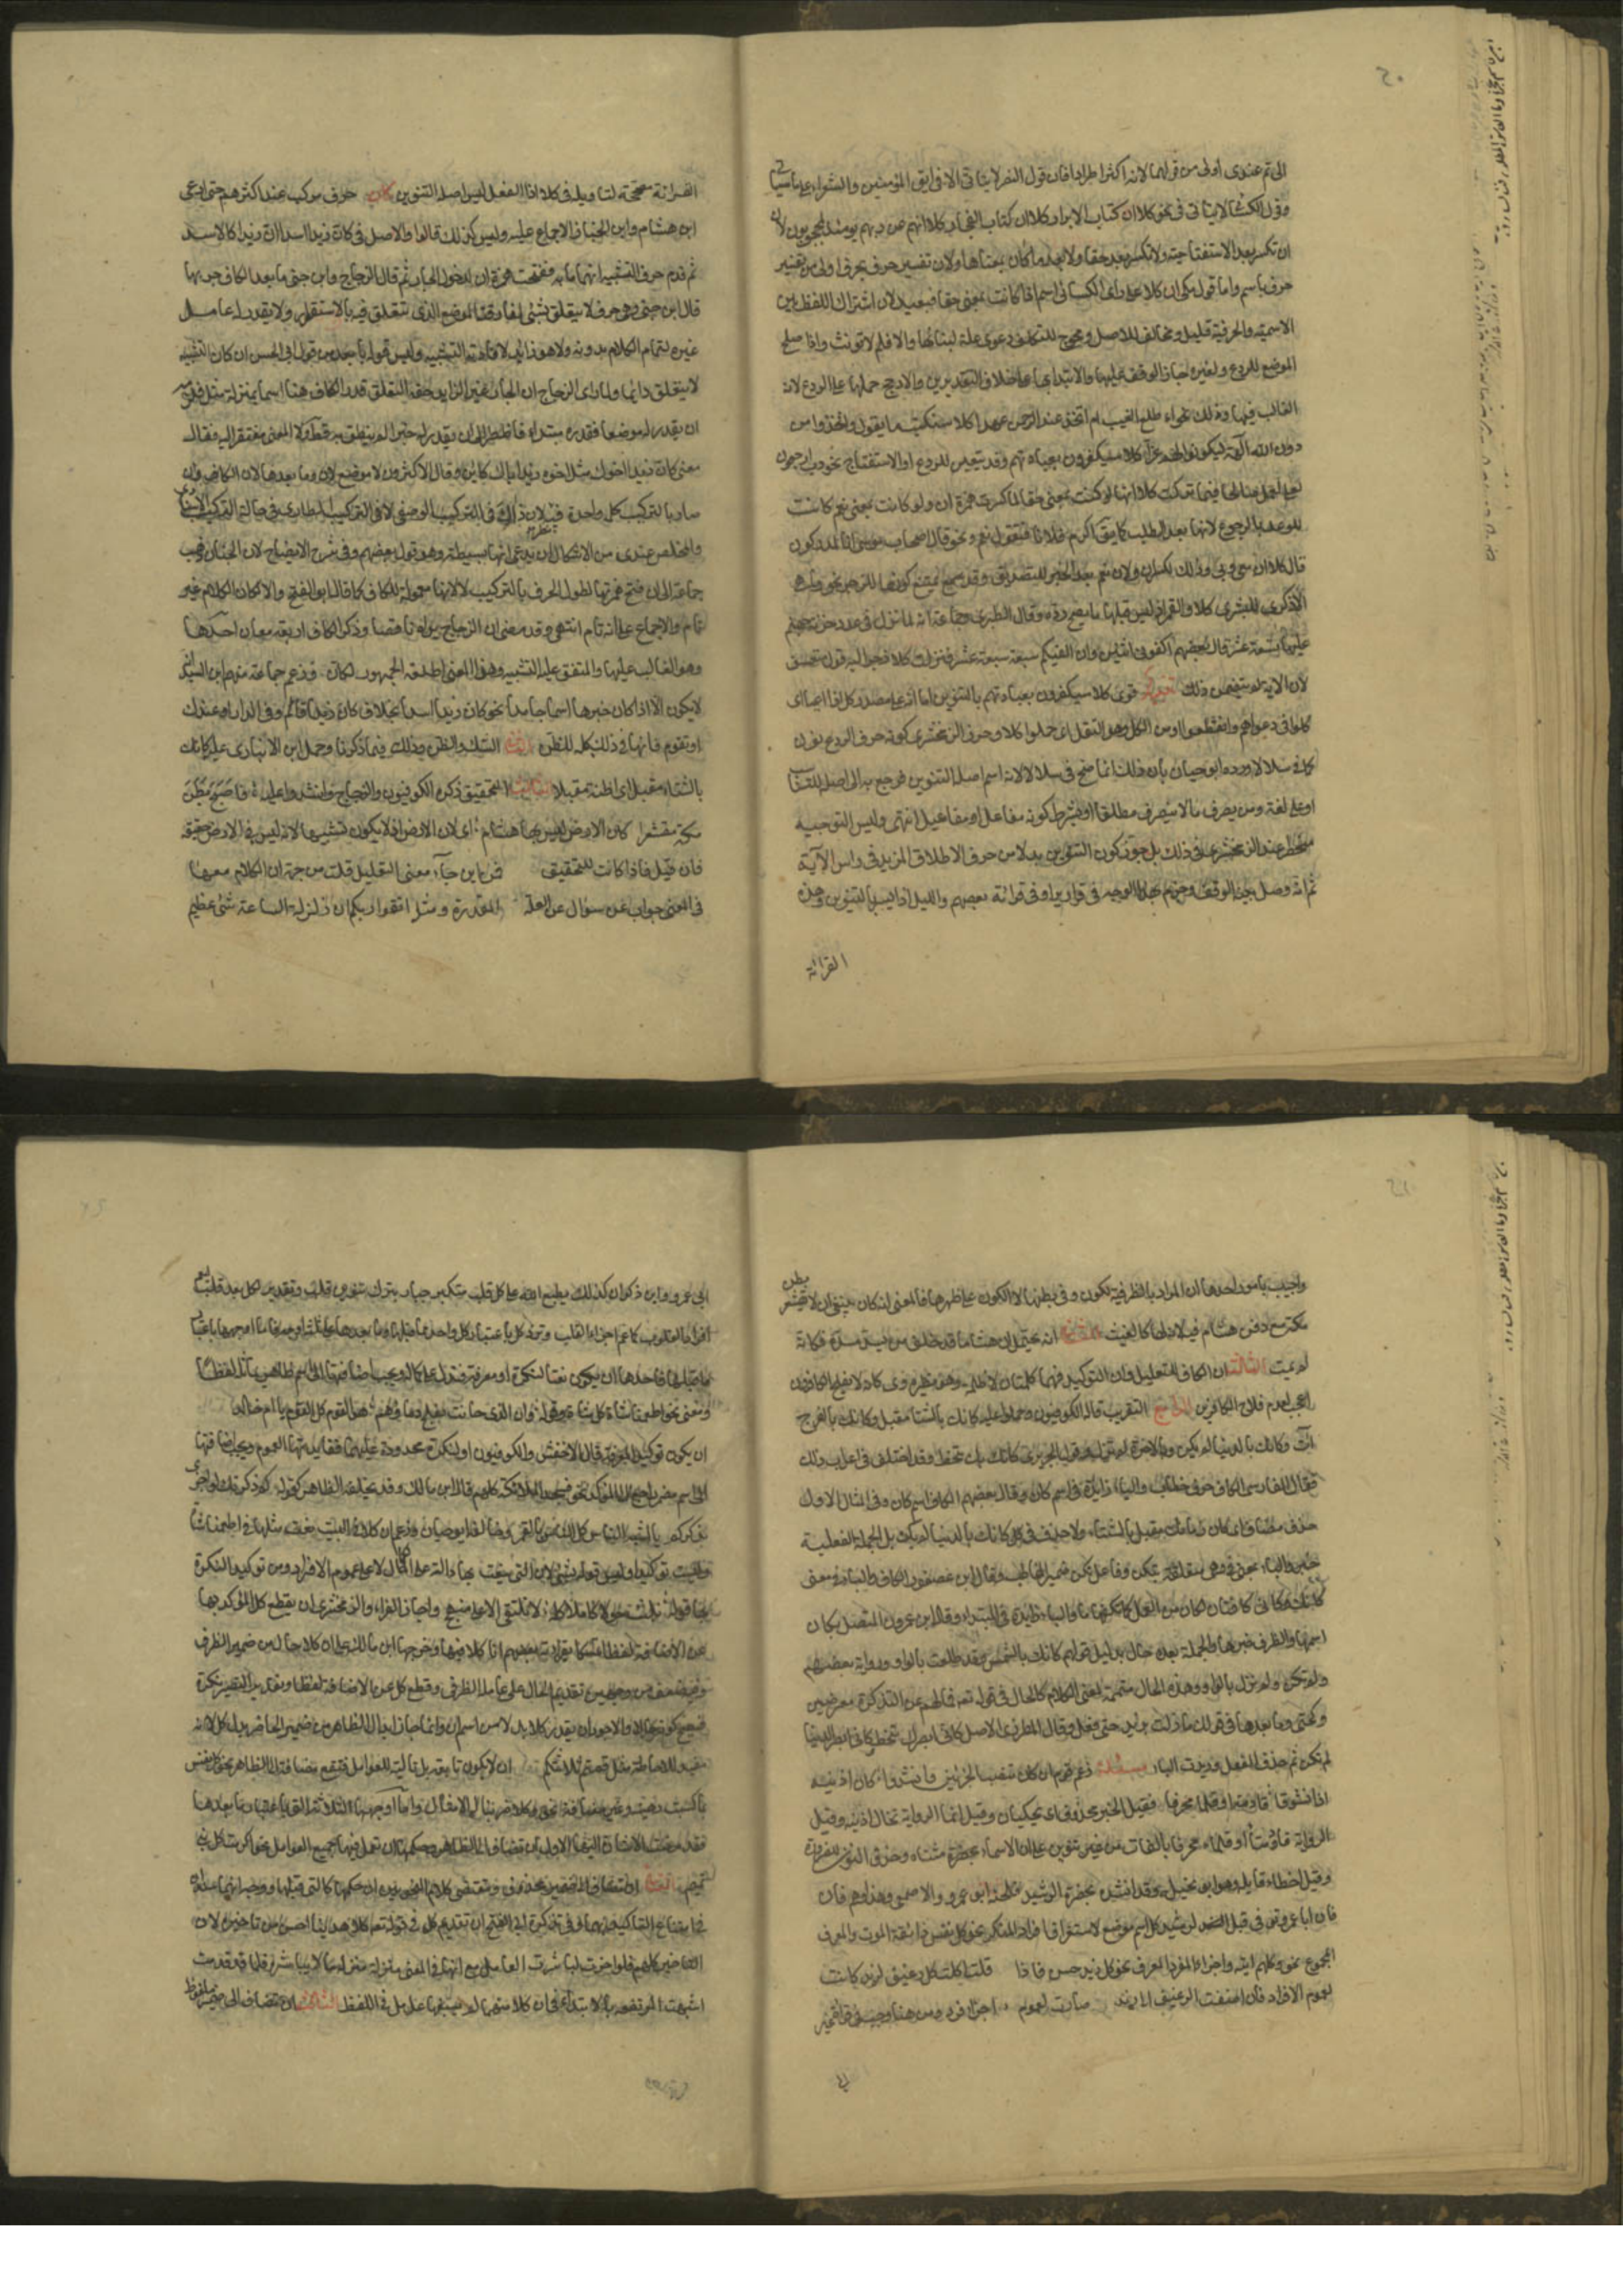 الى تم عندى اولى من قولهما لانه اكثر اطرادا فان قول النضر لا يتاتى الا فى ايتى المؤمنين والشعراء على ما سياتى
وقول الكسائى لا يتاتى فى نحو كلا ان كتاب الابرار كلا ان كتاب الفجار كلا انهم عن ربهم يومئذ لمحجوبون لان
ان تكسر بعد الا استفتاحية ولا تكسر بعد حقا ولا بعد ما كان بمعناها ولان تفسير حرف بحرف اولى من تفسير
حرف باسم واما قول مكى ان كلا على راى الكسائى اسم اذا كانت بمعنى حقا فبعيد لان اشتراك اللفظ بين
الاسمية والحرفية قليل ومخالف للاصل ومحوج للتكلف دعوى علة لبنائها والا فلم لا نونت واذا صلح
الموضع للردع ولغيره جاز الوقف عليها والابتدا بها على اختلاف التقديرين والارجح حملها على الردع لانه
الغالب فيها وذلك نحو اطلع الغيب ام اتخذ عند الرحمن عهدا كلا سنكتب ما يقول واتخذوا من
دون الله آلهة ليكونوا لهم عزا كلا سيكفرون بعبادتهم وقد تتعين للردع او الاستفتاح نحو رب ارجعون
لعلى اعمل صالحا فيما تركت كلا انها لو كانت بمعنى حقا لما كسرت همزة ان ولو كانت بمعنى نعم كانت
للوعد بالرجوع لانها بعد الطلب كما يق اكرم فلانا فتقول نعم ونحو قال اصحاب موسى انا لمدركون
قال كلا ان معى ربى وذلك لكسر ان ولان نعم بعد الخبر للتصديق وقد يمتنع كونها للزجر نحو وما هى
الا ذكرى للبشر كلا والقمر اذ ليس قبلها ما يصح رده وقال الطبرى وجماعة انه لما نزل فى عدد خزنة جهنم
عليها تسعة عشر قال بعضهم اكفونى اثنين وانا اكفيكم سبعة عشر فنزلت كلا زجرا له قول تعسف
لان الاية لم تتضمن ذلك قرى كلا سيكفرون بعبادتهم بالتنوين اما انه على مصدر كل اذا اعيا اى
كلوا فى دعواهم وانقطعوا او من الكل وهو الثقل اى حملوا كلا وجوز الزمخشرى كونه حرف الردع نون
كما فى سلاسلا ورده ابو حيان بان ذلك انما صح فى سلاسلا لانه اسم اصله التنوين فرجع به الى اصله للتناسب
او على لغة من يصرف ما لا ينصرف مطلقا او بشرط كونه مفاعل او مفاعيل انتهى وليس التوجيه
منحصرا عند الزمخشرى فى ذلك بل جوز كون التنوين بدلا من حرف الاطلاق المزيد فى راس الآية
ثم انه وصل بنية الوقف وجزم بهذا الوجه فى قواريرا وفى قرائة بعضهم والليل اذا يسر بالتنوين وهذه
القرائة
القرائة مصححة لتاويله فى كلا اذ الفعل ليس اصله التنوين كان حرف مركب عند اكثرهم حتى ادعى
ابن هشام وابن الخباز الاجماع عليه وليس كذلك قالوا والاصل فى كان زيدا اسد ان زيدا كالاسد
ثم قدم حرف التشبيه اهتماما به ففتحت همزة ان لدخول الجار ثم قال الزجاج وابن جنى ما بعد الكاف جر بها
قال ابن جنى وهى حرف لا يتعلق بشئ لمفارقته الموضع الذى تتعلق فيه بالاستقرار ولا يقدر له عامل
غيره لتمام الكلام بدونه ولا هو زائد لافادته التشبيه وليس قوله بابعد من قول ابى الحسن ان كاف التشبيه
لا يتعلق دائما ولما راى الزجاج ان الجار غير الزايد حقه التعلق قدر الكاف هنا اسما بمنزلة مثل فلزمه
ان يقدر له موضعا فقدره مبتداء فاضطر الى ان يقدر له خبرا لم ينطق به قط ولا المعنى مفتقر اليه فقال
معنى كان زيدا اخوك مثل اخوه زيد اياك كاين وقال الاكثرون لا موضع لان وما بعدها لان الكاف وان
صارا بالتركيب كلمة واحدة وفيه نظر لان ذاك فى التركيب الوضعى لا فى التركيب الطارى فى حالة التركيب الاسنادى
والمخلص عندى من الاشكال ان يدعى انها بسيطة وهو قول بعضهم وفى شرح الايضاح لابن الخباز ذهب
جماعة الى ان فتح همزتها لطول الحرف بالتركيب لا لانها معمولة للكاف كما قال ابو الفتح والا لكان الكلام غير
تام والاجماع على انه تام انتهى وقد مضى ان الزجاج يراه ناقصا وذكروا لكان اربعة معان احدها
وهو الغالب عليها والمتفق عليه التشبيه وهذا المعنى اطلقه الجمهور لكان وزعم جماعة منهم ابن السيد انه
لا يكون الا اذا كان خبرها اسما جامدا نحو كان زيدا اسد بخلاف كان زيدا قائم وفى الدار او عندك
او يقوم فانها فى ذلك كله للظن الثانى الشك والظن وذلك فيما ذكرنا وحمل ابن الانبارى عليه كانك
بالشتاء مقبل اى اظنه مقبلا الثالث التحقيق ذكره الكوفيون والزجاج وانشدوا عليه فاصبح بطن
مكة مقشعرا كان الارض ليس بها هشام اى لان الارض اذ لا يكون تشبيها لانه ليس فى الارض حقيقة
فان قيل فاذا كانت للتحقيق فمن اين جآء معنى التعليل قلت من جهة ان الكلام معها
فى المعنى جواب عن سؤال عن العلة المقدرة ومثله اتقوا ربكم ان زلزلة الساعة شئ عظيم
واجيب بامور احدها ان المراد بالظرفية الكون فى بطنها لا الكون على ظهرها فالمعنى انه كان ينبغى ان لا يقشعر بطن
مكة مع دفن هشام فيه لانه لها كالغيث الثانى انه يحتمل ان هشاما قد خلف من يسد مسده فكانه
لم يمت الثالث ان الكاف للتعليل وان للتوكيد فهما كلمتان لا كلمة ونظيره وى كانه لا يفلح الكافرون
اعجب لعدم فلاح الكافرين الرابع التقريب قاله الكوفيون وحملوا عليه كانك بالشتاء مقبل وكانك بالفرج
آت وكانك بالدنيا لم تكن وبالاخرة لم تزل وقول الحريرى كانى بك تنحط وقد اختلف فى اعراب ذلك
فقال الفارسى الكاف حرف خطاب والباء زايدة فى اسم كان وقال بعضهم الكاف اسم كان وفى المثال الاول
حذف مضاف اى كان زمانك مقبل بالشتاء ولا حذف فى كانك بالدنيا لم تكن بل الجملة الفعلية
خبر والباء بمعنى فى وهى متعلقة بتكن وفاعل تكن ضمير المخاطب وقال ابن عصفور الكاف والياء فى
كانك وكانى كافتان لكان عن العمل كما تكفها ما والباء زايدة فى المبتدا وقال ابن عمرون المتصل بكان
اسمها والظرف خبرها والجملة بعده حال بدليل قولهم كانك بالشمس وقد طلعت بالواو ورواية بعضهم
ولم تكن ولم تزل بالواو وهذه الحال متممة لمعنى الكلام كالحال فى قوله تع فما لهم عن التذكرة معرضين
وكحتى وما بعدها فى قولك ما زلت بزيد حتى فعل وقال المطرزى الاصل كانى ابصرك تنحط وكانى ابصر الدنيا
لم تكن ثم حذف الفعل وزيدت الباء مسئلة زعم قوم ان كان تنصب الجزئين وانشدوا كان اذنيه
اذا تشوفا قادمة او قلما محرفا فقيل الخبر محذوف اى يحكيان وقيل انما الرواية تخال اذنيه وقيل
الرواية قادمتا او قلما محرفا بالفات من غير تنوين على ان الاسماء مثناة وحذف النون للضرورة
وقيل اخطاء قايله وهو ابو نخيلة وقد انشده بحضرة الرشيد فلحنه ابو عمرو والاصمعى وهذا وهم فان
فان ابا عمرو توفى قبل الرشيد كل اسم موضوع لاستغراق افراد المنكر نحو كل نفس ذائقة الموت والمعرف
المجموع نحو وكلهم آتيه واجزاء المفرد المعرف نحو كل زيد حسن فاذا قلت اكلت كل رغيف لزيد كانت
لعموم الافراد فان اضفت الرغيف الى زيد صارت لعموم اجزاء فرد ومن هنا وجب فى قرائة غير
ابى عمرو وابن ذكوان كذلك يطبع الله على كل قلب متكبر جبار بترك تنوين قلب وتقدير كل بعد قلب
افراد القلوب كما عم اجزاء القلب وترد كل باعتبار كل واحد مما قبلها وما بعدها على ثلثة اوجه فاما اوجهها باعتبار
ما قبلها فاحدها ان يكون نعتا لنكرة او معرفة فتدل على كماله ويجب اضافتها الى اسم ظاهر يماثله لفظا
ومعنى نحو اطعمنا شاة كل شاة وقوله وان الذى حانت بفلج دماؤهم هم القوم كل القوم يا ام خالد
ان يكون توكيدا لمعرفة قال الاخفش والكوفيون او لنكرة محدودة وعليهما ففائدتها العموم ويجب اضافتها
الى اسم مضمر راجع الى المؤكد نحو فسجد الملائكة كلهم قال ابن مالك وقد يخلفه الظاهر كقوله كم قد ذكرتك لو اجزى
بذكركم يا اشبه الناس كل الناس بالقمر وخالفه ابو حيان وزعم ان كلا فى البيت نعت مثلها فى اطعمنا شاة
وليست توكيدا وليس قوله بشئ لان التى ينعت بها دالة على الكمال لا على عموم الافراد ومن توكيد النكرة
بها قوله نلبث حولا كاملا كله لا نلتقى الا على منهج واجاز الفراء والزمخشرى ان يقطع كل المؤكد بها
عن الاضافة لفظا تمسكا بقرائة بعضهم انا كلا فيها وخرجها ابن مالك على ان كلا حال من ضمير الظرف
وفيه ضعف من وجهين تقديم الحال على عامله الظرفى وقطع كل عن الاضافة لفظا وتقديرا لتصير نكرة
فيصح كونه حالا والاجود ان يقدر كلا بدلا من اسم ان وانما جاز ابدال الظاهر من ضمير الحاضر بدل كل لانه
مفيد للاحاطة مثل قمتم ثلاثتكم ان لا يكون تابعة بل تالية للعوامل فتقع مضافة الى الظاهر نحو كل نفس
بما كسبت رهينة وغير مضافة نحو وكلا ضربنا له الامثال واما اوجهها الثلاثة التى باعتبار ما بعدها
فقد مضت الاشارة اليها الاول ان تضاف الى الظاهر وحكمها ان تعمل فيها جميع العوامل نحو اكرمت كل بنى
تميم الثانى ان تضاف الى ضمير محذوف ومقتضى كلام النحويين ان حكمها كالتى قبلها ووجهه انهما سيان
فى امتناع التاكيد بهما وفى تذكرة ابى الفتح ان تقديم كل فى قوله تع كلا هدينا احسن من تاخيره لان
التقدير كلهم فلو اخرت لباشرت العامل مع انها فى المعنى منزلة منزلة ما لا يباشره فلما قدمت
اشبهت المرتفعة بالابتداء فى ان كلا منهما لم يسبقها عامل فى اللفظ الثالث ان تضاف الى ضمير ملفوظ